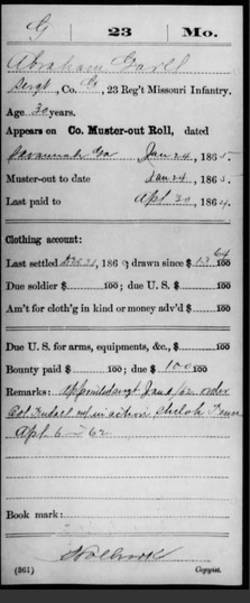 G | 23 | Mo.
Abraham
Sergt, Co. G, 23 Reg't Missouri Infantry.
Age 30 years.
Appears on Co. Muster-out Roll, dated
Savannah Ga Jan 24, 1865.
Muster-out to date Jan 24, 1865.
Last paid to Apl 30, 1864.
Clothing account:
Last settled Dec 31, 186 drawn since $ 13 64/100
Due soldier $ 100; due U. S. $ 100
Am't for cloth'g in kind or money adv'd $ 100
Due U. S. for arms, equipments, &c., $ 100
Bounty paid $ 100; due $ 100 100
Remarks: Appointed sergt Jan 1/62 order
Col. Tindall in action Shiloh Tenn
Apl. 6 - 62
Book mark:
Holbrook
(361) Copyist.